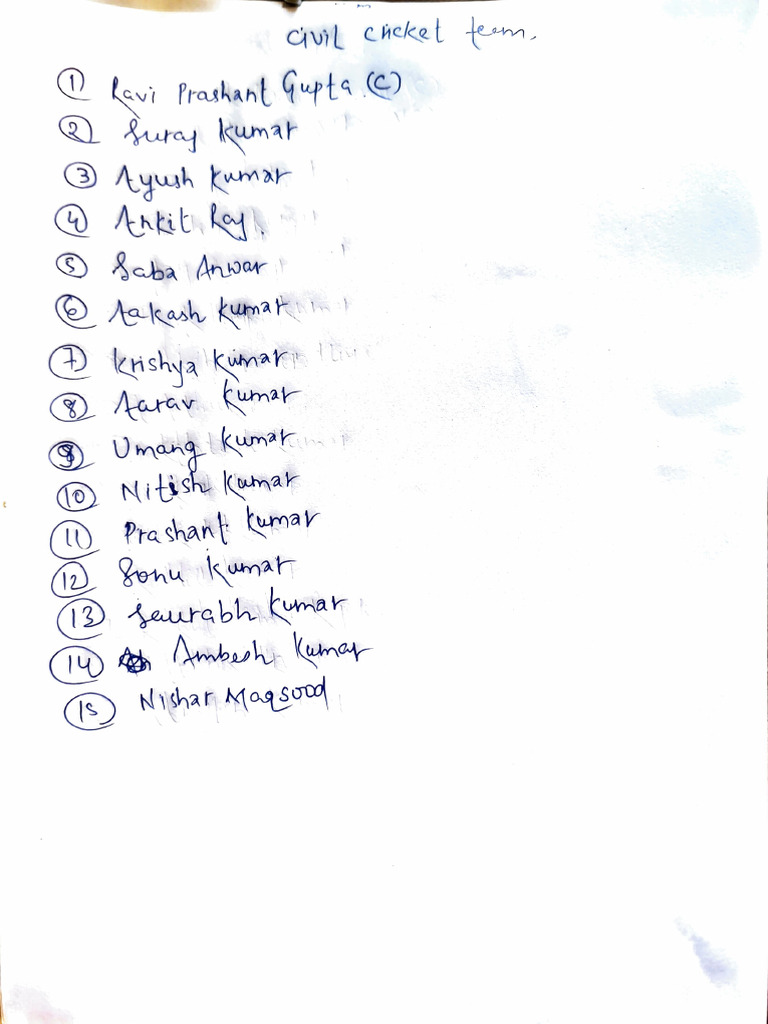 Civil cricket team.
① Ravi Prashant Gupta (C)
② Suraj Kumar
③ Ayush Kumar
④ Ankit Raj.
⑤ Saba Anwar
⑥ Aakash Kumar
⑦ Krishya Kumar
⑧ Aarav Kumar
⑨ Umang Kumar
⑩ Nitish Kumar
⑪ Prashant Kumar
⑫ Sonu Kumar
⑬ Saurabh Kumar
⑭ Ambesh Kumar
⑮ Nishar Maqsood